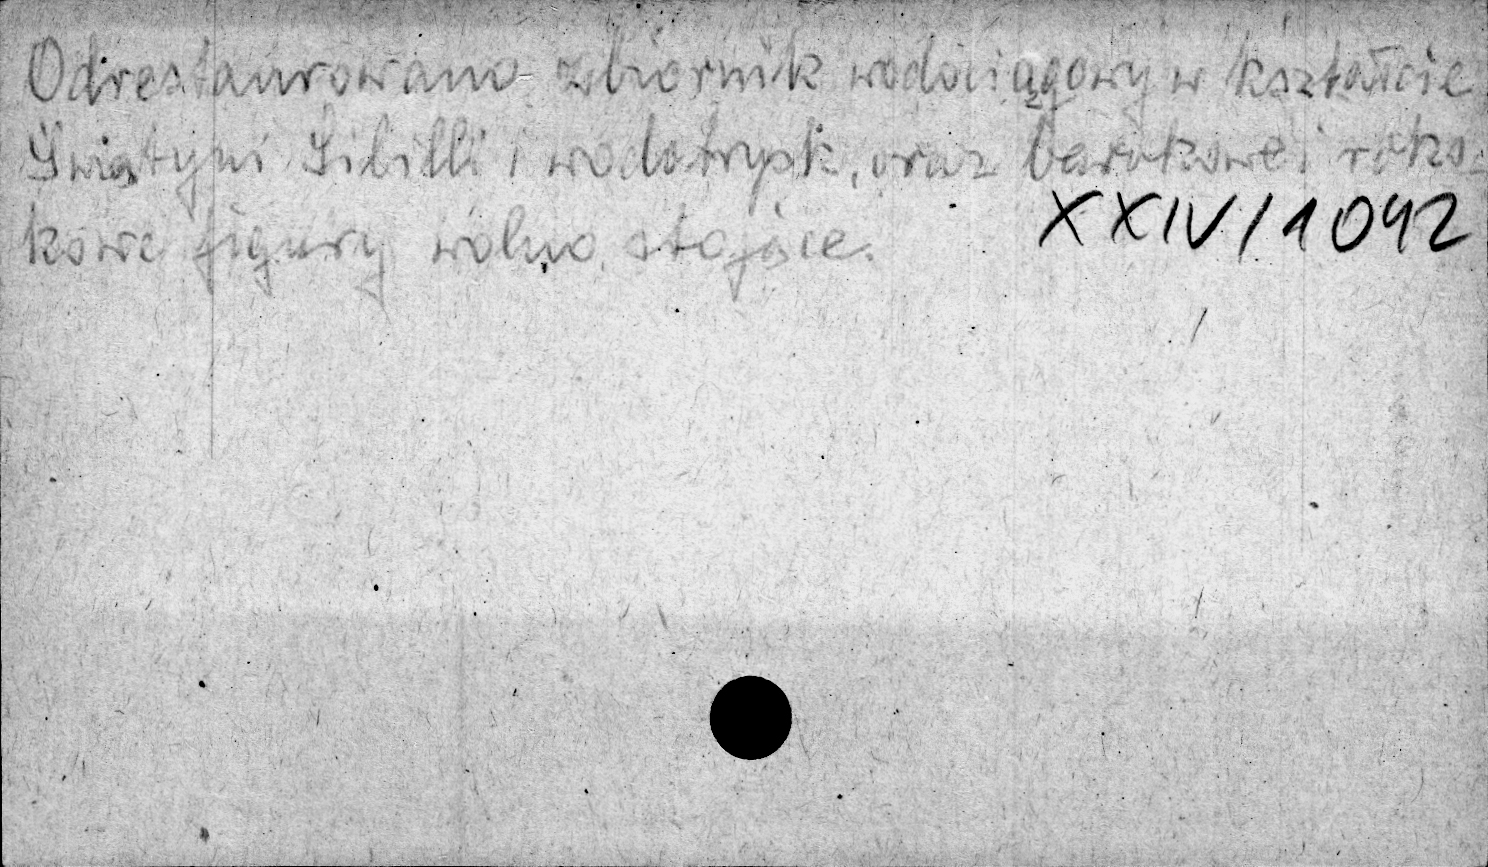 Odrestaurowano zbiornik wodociągowy w kształcie
Świątyni Sibilli i wodotrysk, oraz barokowe i roko-
kowe figury wolno stojące.
XXIV/1092